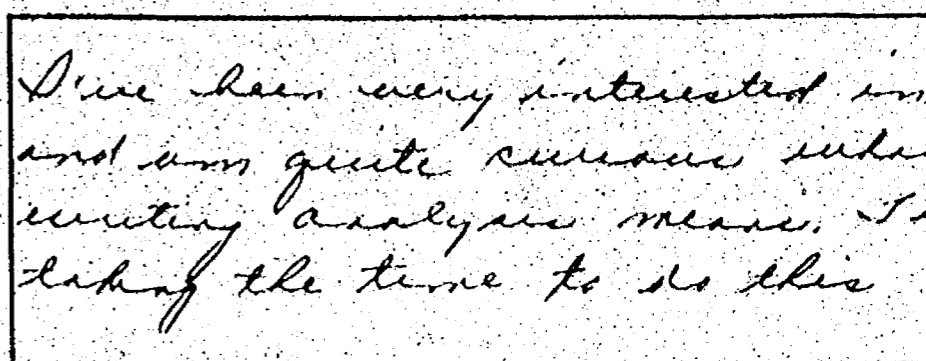 I've been very interested in
and am quite curious what
writing analysis means. 
taking the time to do this